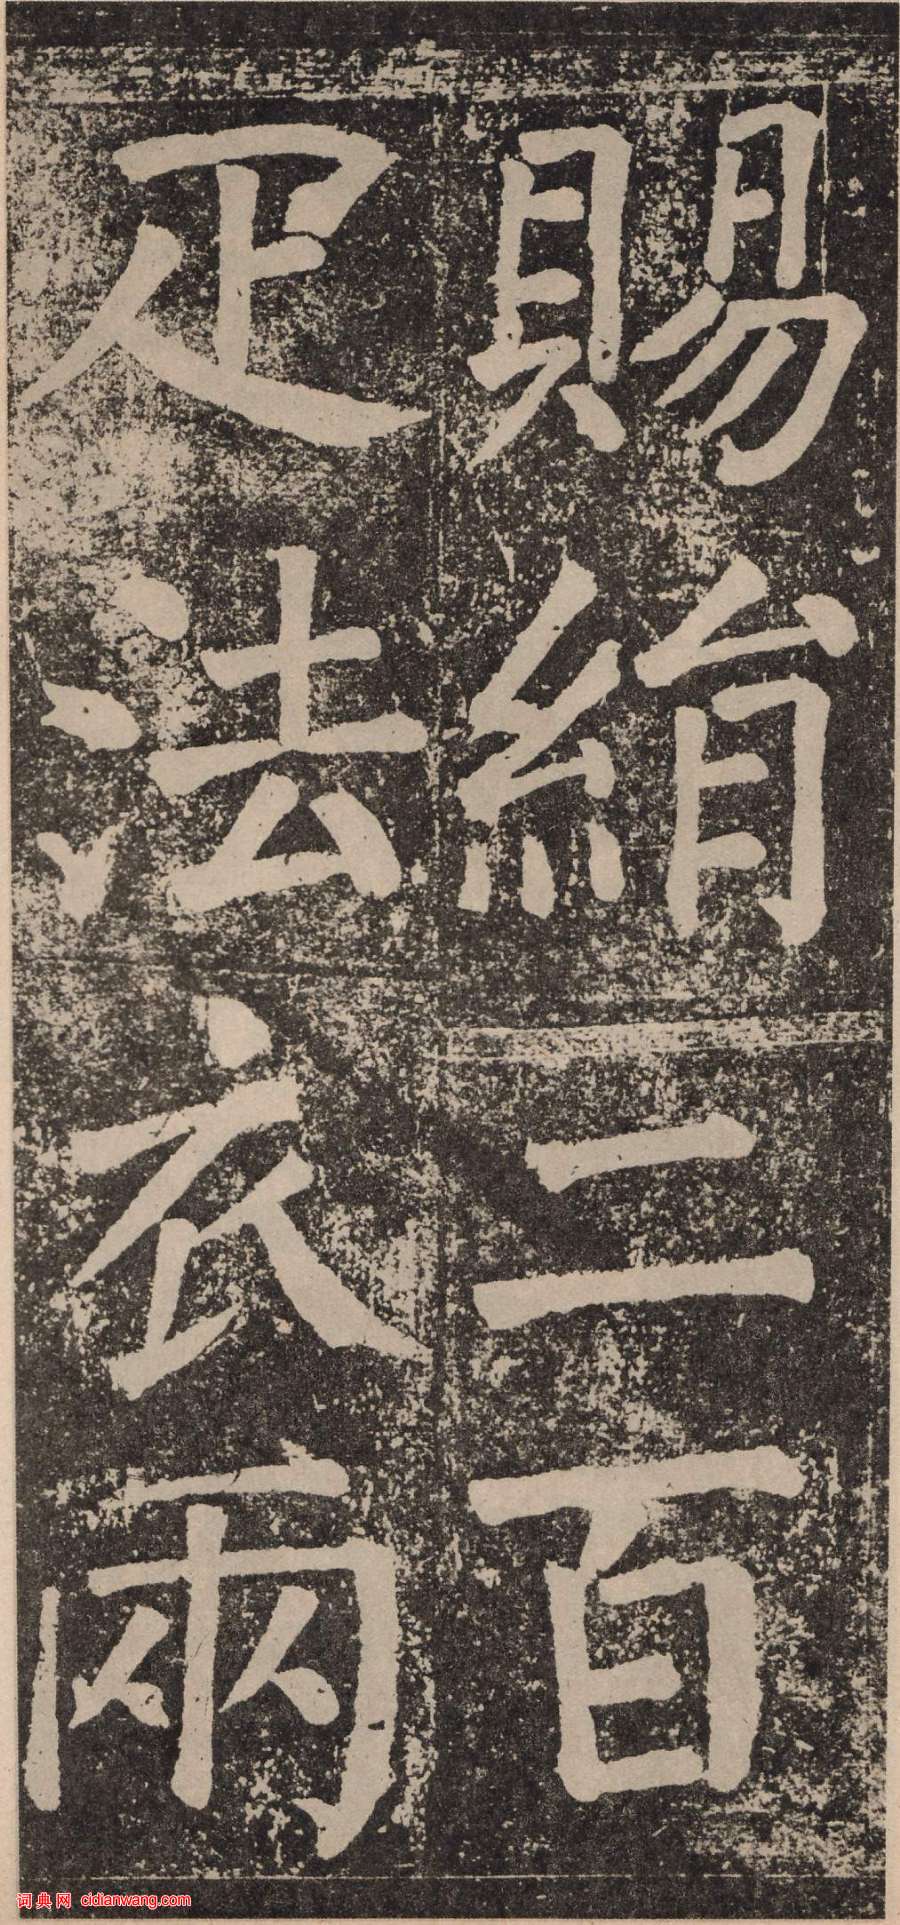 賜絹二百
疋法衣兩
词典网 cidianwang.com